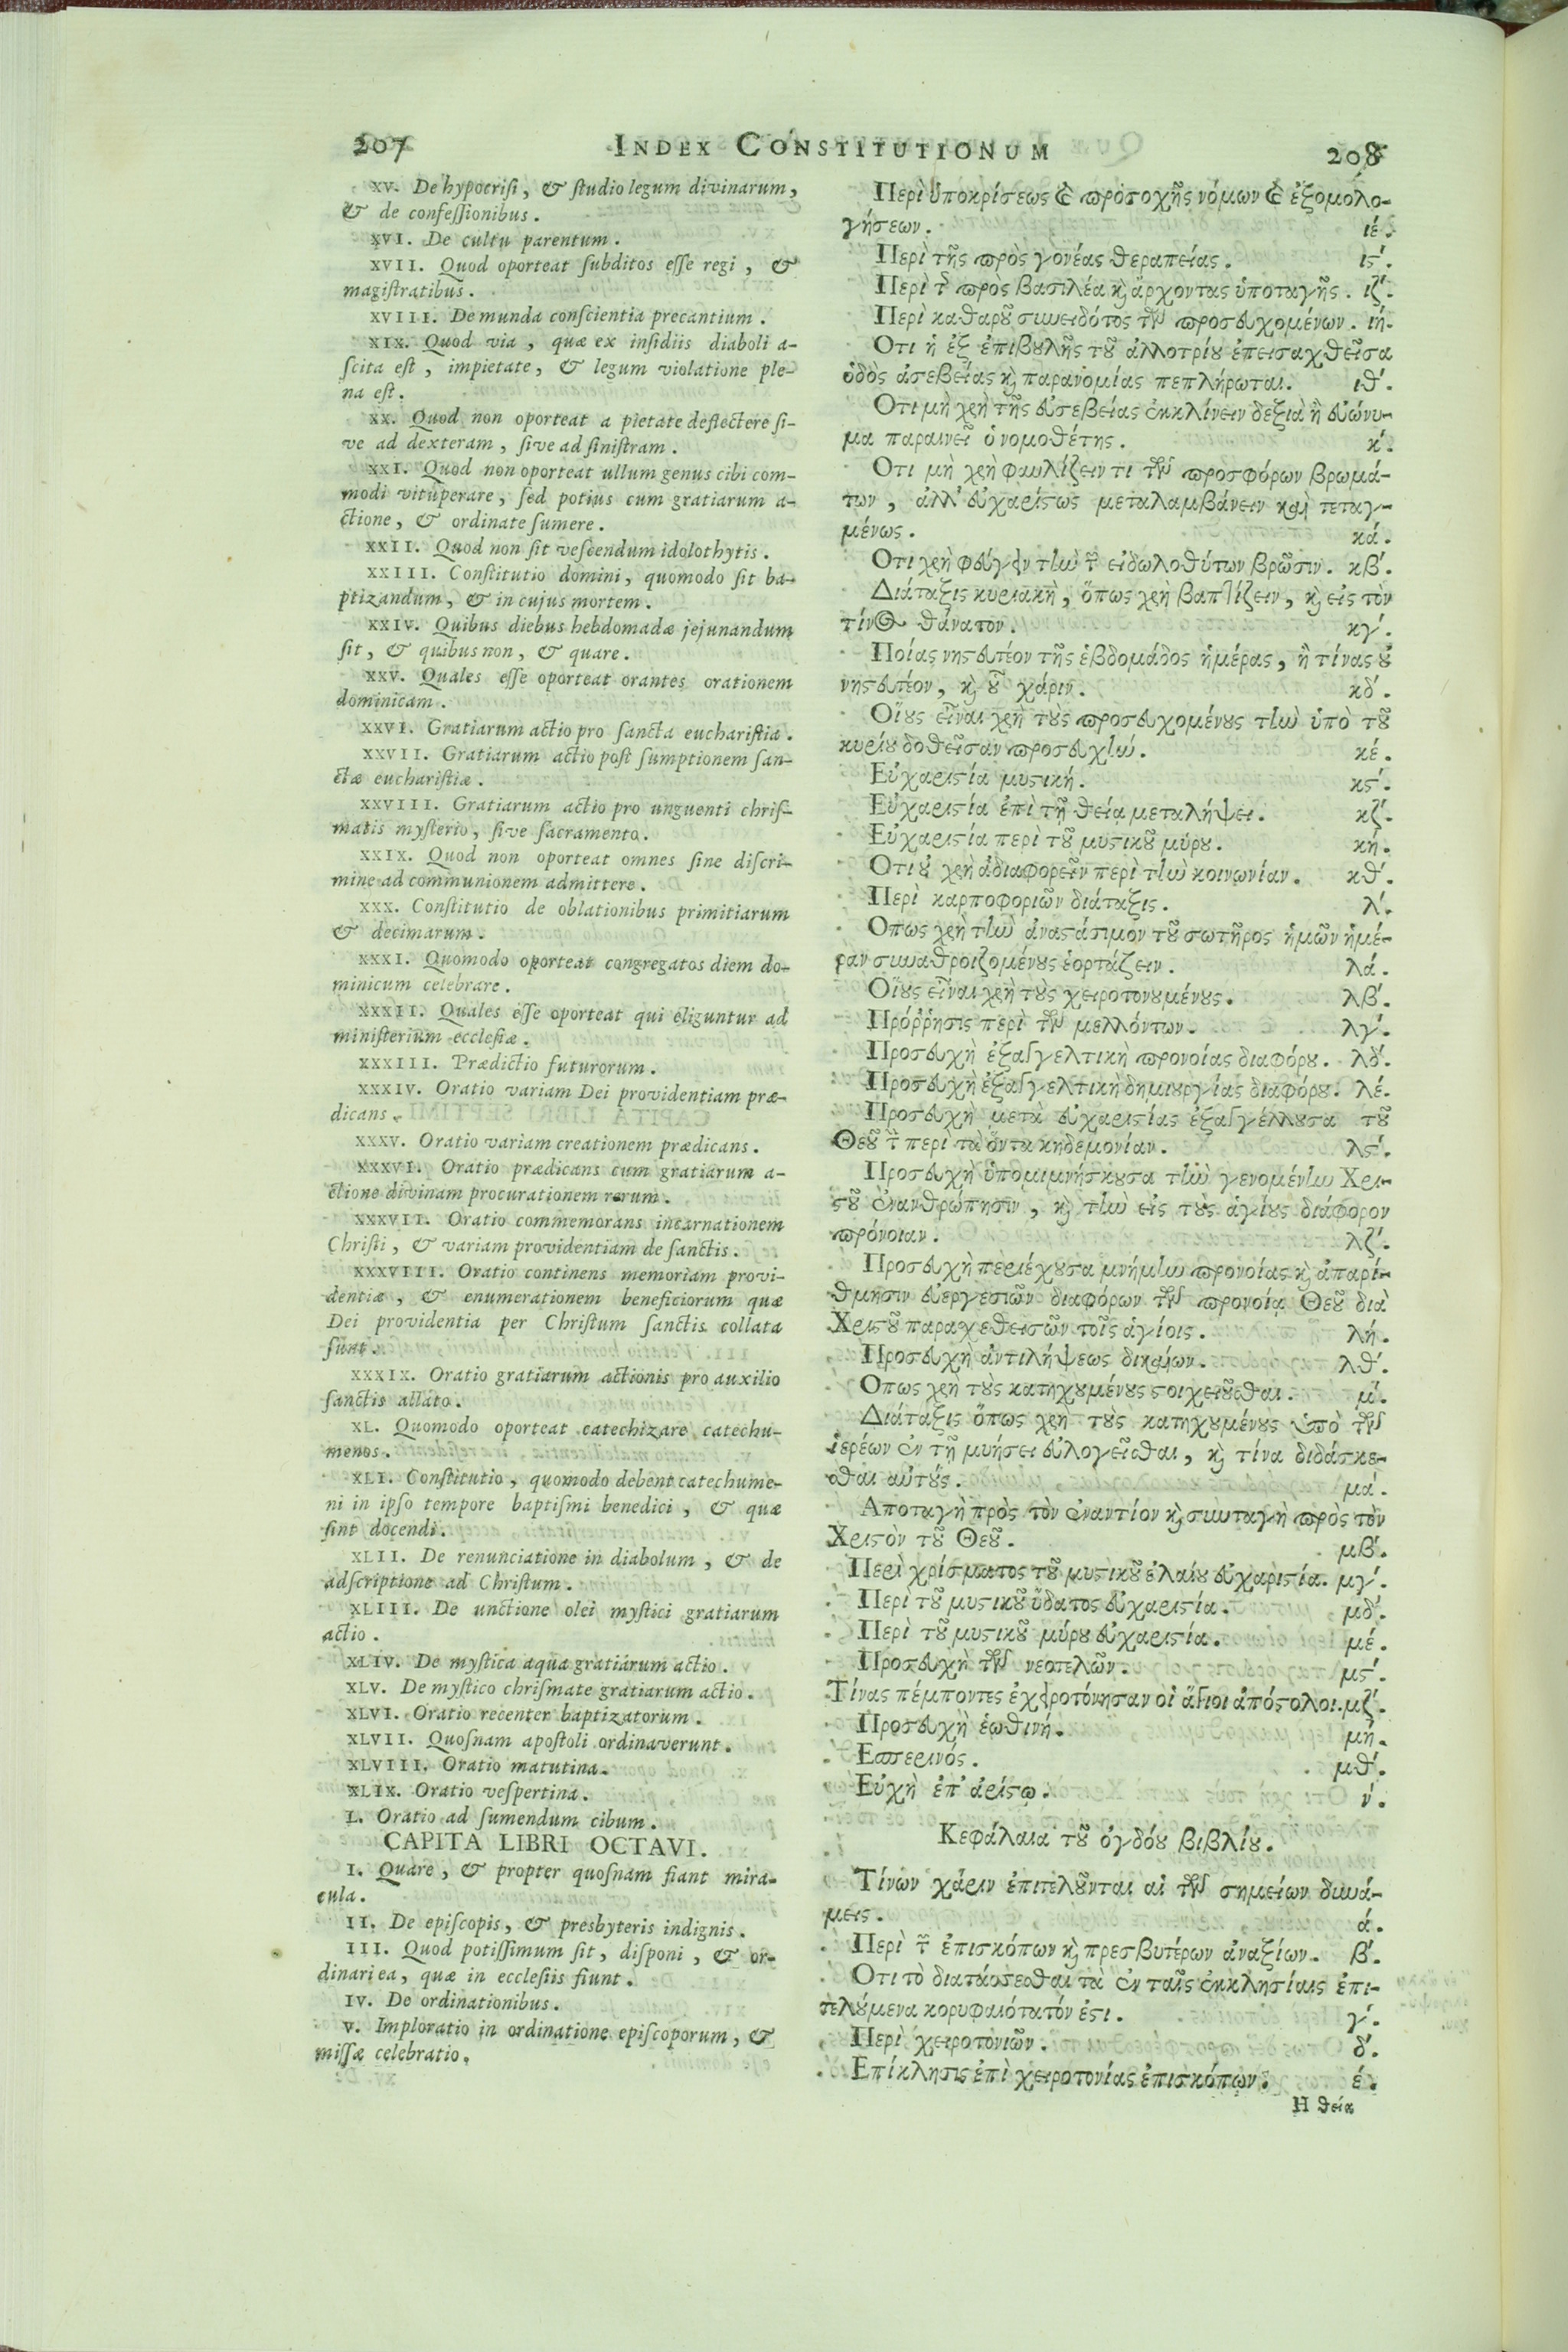 207
INDEX CONSTITUTIONUM
208
XV. De hypocrisi, & studio legum divinarum,
& de confessionibus.
XVI. De cultu parentum.
XVII. Quod oporteat subditos esse regi, &
magistratibus.
XVIII. De munda conscientia precantium.
XIX. Quod via, quæ ex insidiis diaboli a-
scita est, impietate, & legum violatione ple-
na est.
XX. Quod non oporteat a pietate deflectere si-
ve ad dexteram, sive ad sinistram.
XXI. Quod non oporteat ullum genus cibi com-
modi vituperare, sed potius cum gratiarum a-
ctione, & ordinate sumere.
XXII. Quod non sit vescendum idolothytis.
XXIII. Constitutio domini, quomodo sit ba-
ptizandum, & in cujus mortem.
XXIV. Quibus diebus hebdomadæ jejunandum
sit, & quibus non, & quare.
XXV. Quales esse oporteat orantes orationem
dominicam.
XXVI. Gratiarum actio pro sancta eucharistia.
XXVII. Gratiarum actio post sumptionem san-
ctæ eucharistiæ.
XXVIII. Gratiarum actio pro unguenti chris-
matis mysterio, sive sacramento.
XXIX. Quod non oporteat omnes sine discri-
mine ad communionem admittere.
XXX. Constitutio de oblationibus primitiarum
& decimarum.
XXXI. Quomodo oporteat congregatos diem do-
minicum celebrare.
XXXII. Quales esse oporteat qui eliguntur ad
ministerium ecclesiæ.
XXXIII. Prædictio futurorum.
XXXIV. Oratio variam Dei providentiam præ-
dicans.
XXXV. Oratio variam creationem prædicans.
XXXVI. Oratio prædicans cum gratiarum a-
ctione divinam procurationem rerum.
XXXVII. Oratio commemorans incarnationem
Christi, & variam providentiam de sanctis.
XXXVIII. Oratio continens memoriam provi-
dentiæ, & enumerationem beneficiorum quæ
Dei providentia per Christum sanctis collata
sunt.
XXXIX. Oratio gratiarum actionis pro auxilio
sanctis allato.
XL. Quomodo oporteat catechizare catechu-
menos.
XLI. Constitutio, quomodo debent catechume-
ni in ipso tempore baptismi benedici, & quæ
sint docendi.
XLII. De renunciatione in diabolum, & de
adscriptione ad Christum.
XLIII. De unctione olei mystici gratiarum
actio.
XLIV. De mystica aqua gratiarum actio.
XLV. De mystico chrismate gratiarum actio.
XLVI. Oratio recenter baptizatorum.
XLVII. Quosnam apostoli ordinaverunt.
XLVIII. Oratio matutina.
XLIX. Oratio vespertina.
L. Oratio ad sumendum cibum.
CAPITA LIBRI OCTAVI.
I. Quare, & propter quosnam fiant mira-
cula.
II. De episcopis, & presbyteris indignis.
III. Quod potissimum sit, disponi, & or-
dinari ea, quæ in ecclesiis fiunt.
IV. De ordinationibus.
V. Imploratio in ordinatione episcoporum, &
missæ celebratio.
Περὶ ὑποκρίσεως καὶ προσοχῆς νόμων καὶ ἐξομολο-
γήσεων. ιέ.
Περὶ τῆς πρὸς γονέας θεραπείας. ιϛ΄.
Περὶ τῆς πρὸς βασιλέα καὶ ἄρχοντας ὑποταγῆς. ιζ΄.
Περὶ καθαροῦ συνειδότος τῶν προσευχομένων. ιή.
Οτι ἡ ἐξ ἐπιβουλῆς τοῦ ἀλλοτρίου ἐπεισαχθεῖσα
ὁδὸς ἀσεβείας καὶ παρανομίας πεπλήρωται. ιθ΄.
Οτι μὴ χρὴ τῆς εὐσεβείας ἐκκλίνειν δεξιὰ ἢ εὐώνυ-
μα παραινεῖ ὁ νομοθέτης. κ΄.
Οτι μὴ χρὴ φαυλίζειν τι τῶν προσφόρων βρωμά-
των, ἀλλ' εὐχαρίστως μεταλαμβάνειν καὶ τεταγ-
μένως. κά.
Οτι χρὴ φεύγειν τὴν τῶν εἰδωλοθύτων βρῶσιν. κβ΄.
Διάταξις κυριακὴ, ὅπως χρὴ βαπτίζειν, καὶ εἰς τὸν
τίνος θάνατον. κγ΄.
Ποίας νηστευτέον τῆς ἑβδομάδος ἡμέρας, ἢ τίνας οὐ
νηστευτέον, καὶ οὗ χάριν. κδ΄.
Οἵους εἶναι χρὴ τοὺς προσευχομένους τὴν ὑπὸ τοῦ
κυρίου δοθεῖσαν προσευχήν. κέ.
Εὐχαριστία μυστική. κϛ΄.
Εὐχαριστία ἐπὶ τῇ θείᾳ μεταλήψει. κζ΄.
Εὐχαριστία περὶ τοῦ μυστικοῦ μύρου. κή.
Οτι οὐ χρὴ ἀδιαφορεῖν περὶ τὴν κοινωνίαν. κθ΄.
Περὶ καρποφοριῶν διάταξις. λ΄.
Οπως χρὴ τὴν ἀναστάσιμον τοῦ σωτῆρος ἡμῶν ἡμέ-
ραν συναθροιζομένους ἑορτάζειν. λά.
Οἵους εἶναι χρὴ τοὺς χειροτονουμένους. λβ΄.
Πρόῤῥησις περὶ τῶν μελλόντων. λγ΄.
Προσευχὴ ἐξαγγελτικὴ προνοίας διαφόρου. λδ΄.
Προσευχὴ ἐξαγγελτικὴ δημιουργίας διαφόρου. λέ.
Προσευχὴ μετὰ εὐχαριστίας ἐξαγγέλλουσα τοῦ
Θεοῦ τὴν περὶ τὰ ὄντα κηδεμονίαν. λϛ΄.
Προσευχὴ ὑπομιμνήσκουσα τὴν γενομένην Χρι-
στοῦ ἐνανθρώπησιν, καὶ τὴν εἰς τοὺς ἁγίους διάφορον
πρόνοιαν. λζ΄.
Προσευχὴ περιέχουσα μνήμην προνοίας καὶ ἀπαρί-
θμησιν εὐεργεσιῶν διαφόρων τῶν προνοίᾳ Θεοῦ διὰ
Χριστοῦ παρασχεθεισῶν τοῖς ἁγίοις. λή.
Προσευχὴ ἀντιλήψεως δικαίων. λθ΄.
Οπως χρὴ τοὺς κατηχουμένους στοιχειοῦσθαι. μ΄.
Διάταξις ὅπως χρὴ τοὺς κατηχουμένους ὑπὸ τῶν
ἱερέων ἐν τῇ μυήσει εὐλογεῖσθαι, καὶ τίνα διδάσκε-
σθαι αὐτούς. μά.
Αποταγὴ πρὸς τὸν ἐναντίον καὶ συνταγὴ πρὸς τὸν
Χριστὸν τοῦ Θεοῦ. μβ΄.
Περὶ χρίσματος τοῦ μυστικοῦ ἐλαίου εὐχαριστία. μγ΄.
Περὶ τοῦ μυστικοῦ ὕδατος εὐχαριστία. μδ΄.
Περὶ τοῦ μυστικοῦ μύρου εὐχαριστία. μέ.
Προσευχὴ τῶν νεοτελῶν. μϛ΄.
Τίνας πέμποντες ἐχειροτόνησαν οἱ ἅγιοι ἀπόστολοι. μζ΄.
Προσευχὴ ἑωθινή. μή.
Εσπερινός. μθ΄.
Εὐχὴ ἐπ' ἀρίστῳ. ν΄.
Κεφάλαια τοῦ ὀγδόου βιβλίου.
Τίνων χάριν ἐπιτελοῦνται αἱ τῶν σημείων δυνά-
μεις. ά.
Περὶ τῶν ἐπισκόπων καὶ πρεσβυτέρων ἀναξίων. β΄.
Οτι τὸ διατάσσεσθαι τὰ ἐν ταῖς ἐκκλησίαις ἐπι-
τελούμενα κορυφαιότατόν ἐστι. γ΄.
Περὶ χειροτονιῶν. δ΄.
Επίκλησις ἐπὶ χειροτονίας ἐπισκόπων. έ.
Η θεία